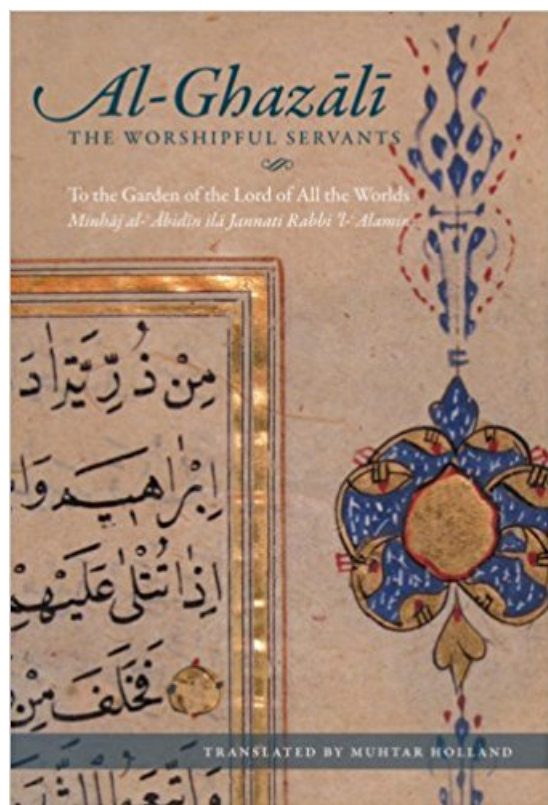 Al-Ghazālī
THE WORSHIPFUL SERVANTS
To the Garden of the Lord of All the Worlds
Minhāj al-ʿĀbidīn ilā Jannati Rabbi ʾl-ʿAlamīn
مِنْ ذُرِّيَّةِ اٰدَ
اِبْرٰاهِيمَ وَا
اِذَا تُتْلٰى عَلَيْهِمْ
فَخَلَفَ مِنْ
TRANSLATED BY MUHTAR HOLLAND